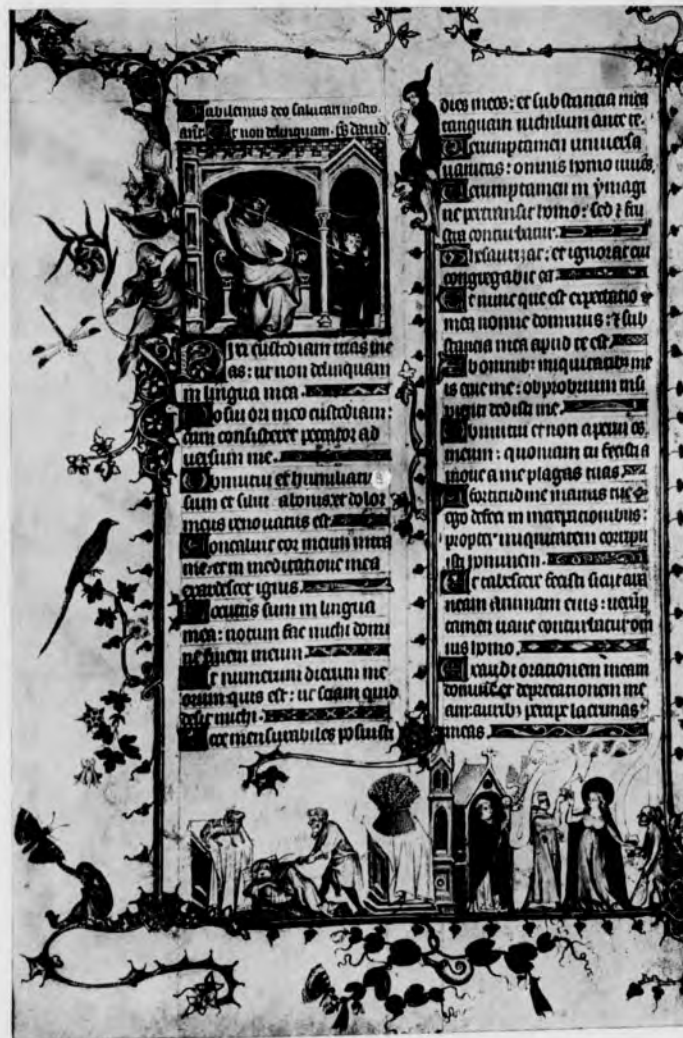 Jubilemus deo salutari nostro.
ant. Ut non delinquam. ps david
Dixi custodiam vias me
as: ut non delinquam
in lingua mea.
Posui ori meo custodiam:
cum consisteret peccator ad
versum me.
Obmutui et humiliatus
sum et silui a bonis: et dolor
meus renovatus est.
Concaluit cor meum intra
me: et in meditatione mea
exardescet ignis.
Locutus sum in lingua
mea: notum fac michi domi
ne finem meum.
Et numerum dierum me
orum quis est: ut sciam quid
desit michi.
Ecce mensurabiles posuisti
dies meos: et substancia mea
tanquam nichilum ante te.
Verumptamen universa
vanitas: omnis homo vivens.
Verumptamen in ymagi
ne pertransit homo: sed et fru
stra conturbatur.
Thesaurizat: et ignorat cui
congregabit ea.
Et nunc que est expectatio
mea nonne dominus: et sub
stancia mea apud te est.
Ab omnibus iniquitatibus me
is erue me: obprobrium insi
pienti dedisti me.
Obmutui et non aperui os
meum: quoniam tu fecisti a
move a me plagas tuas.
A fortitudine manus tue
ego defeci in increpationibus:
propter iniquitatem corripu
isti hominem.
Et tabescere fecisti sicut ara
neam animam eius: verump
tamen vane conturbatur om
nis homo.
Exaudi orationem meam
domine et deprecationem me
am: auribus percipe lacrimas
meas.